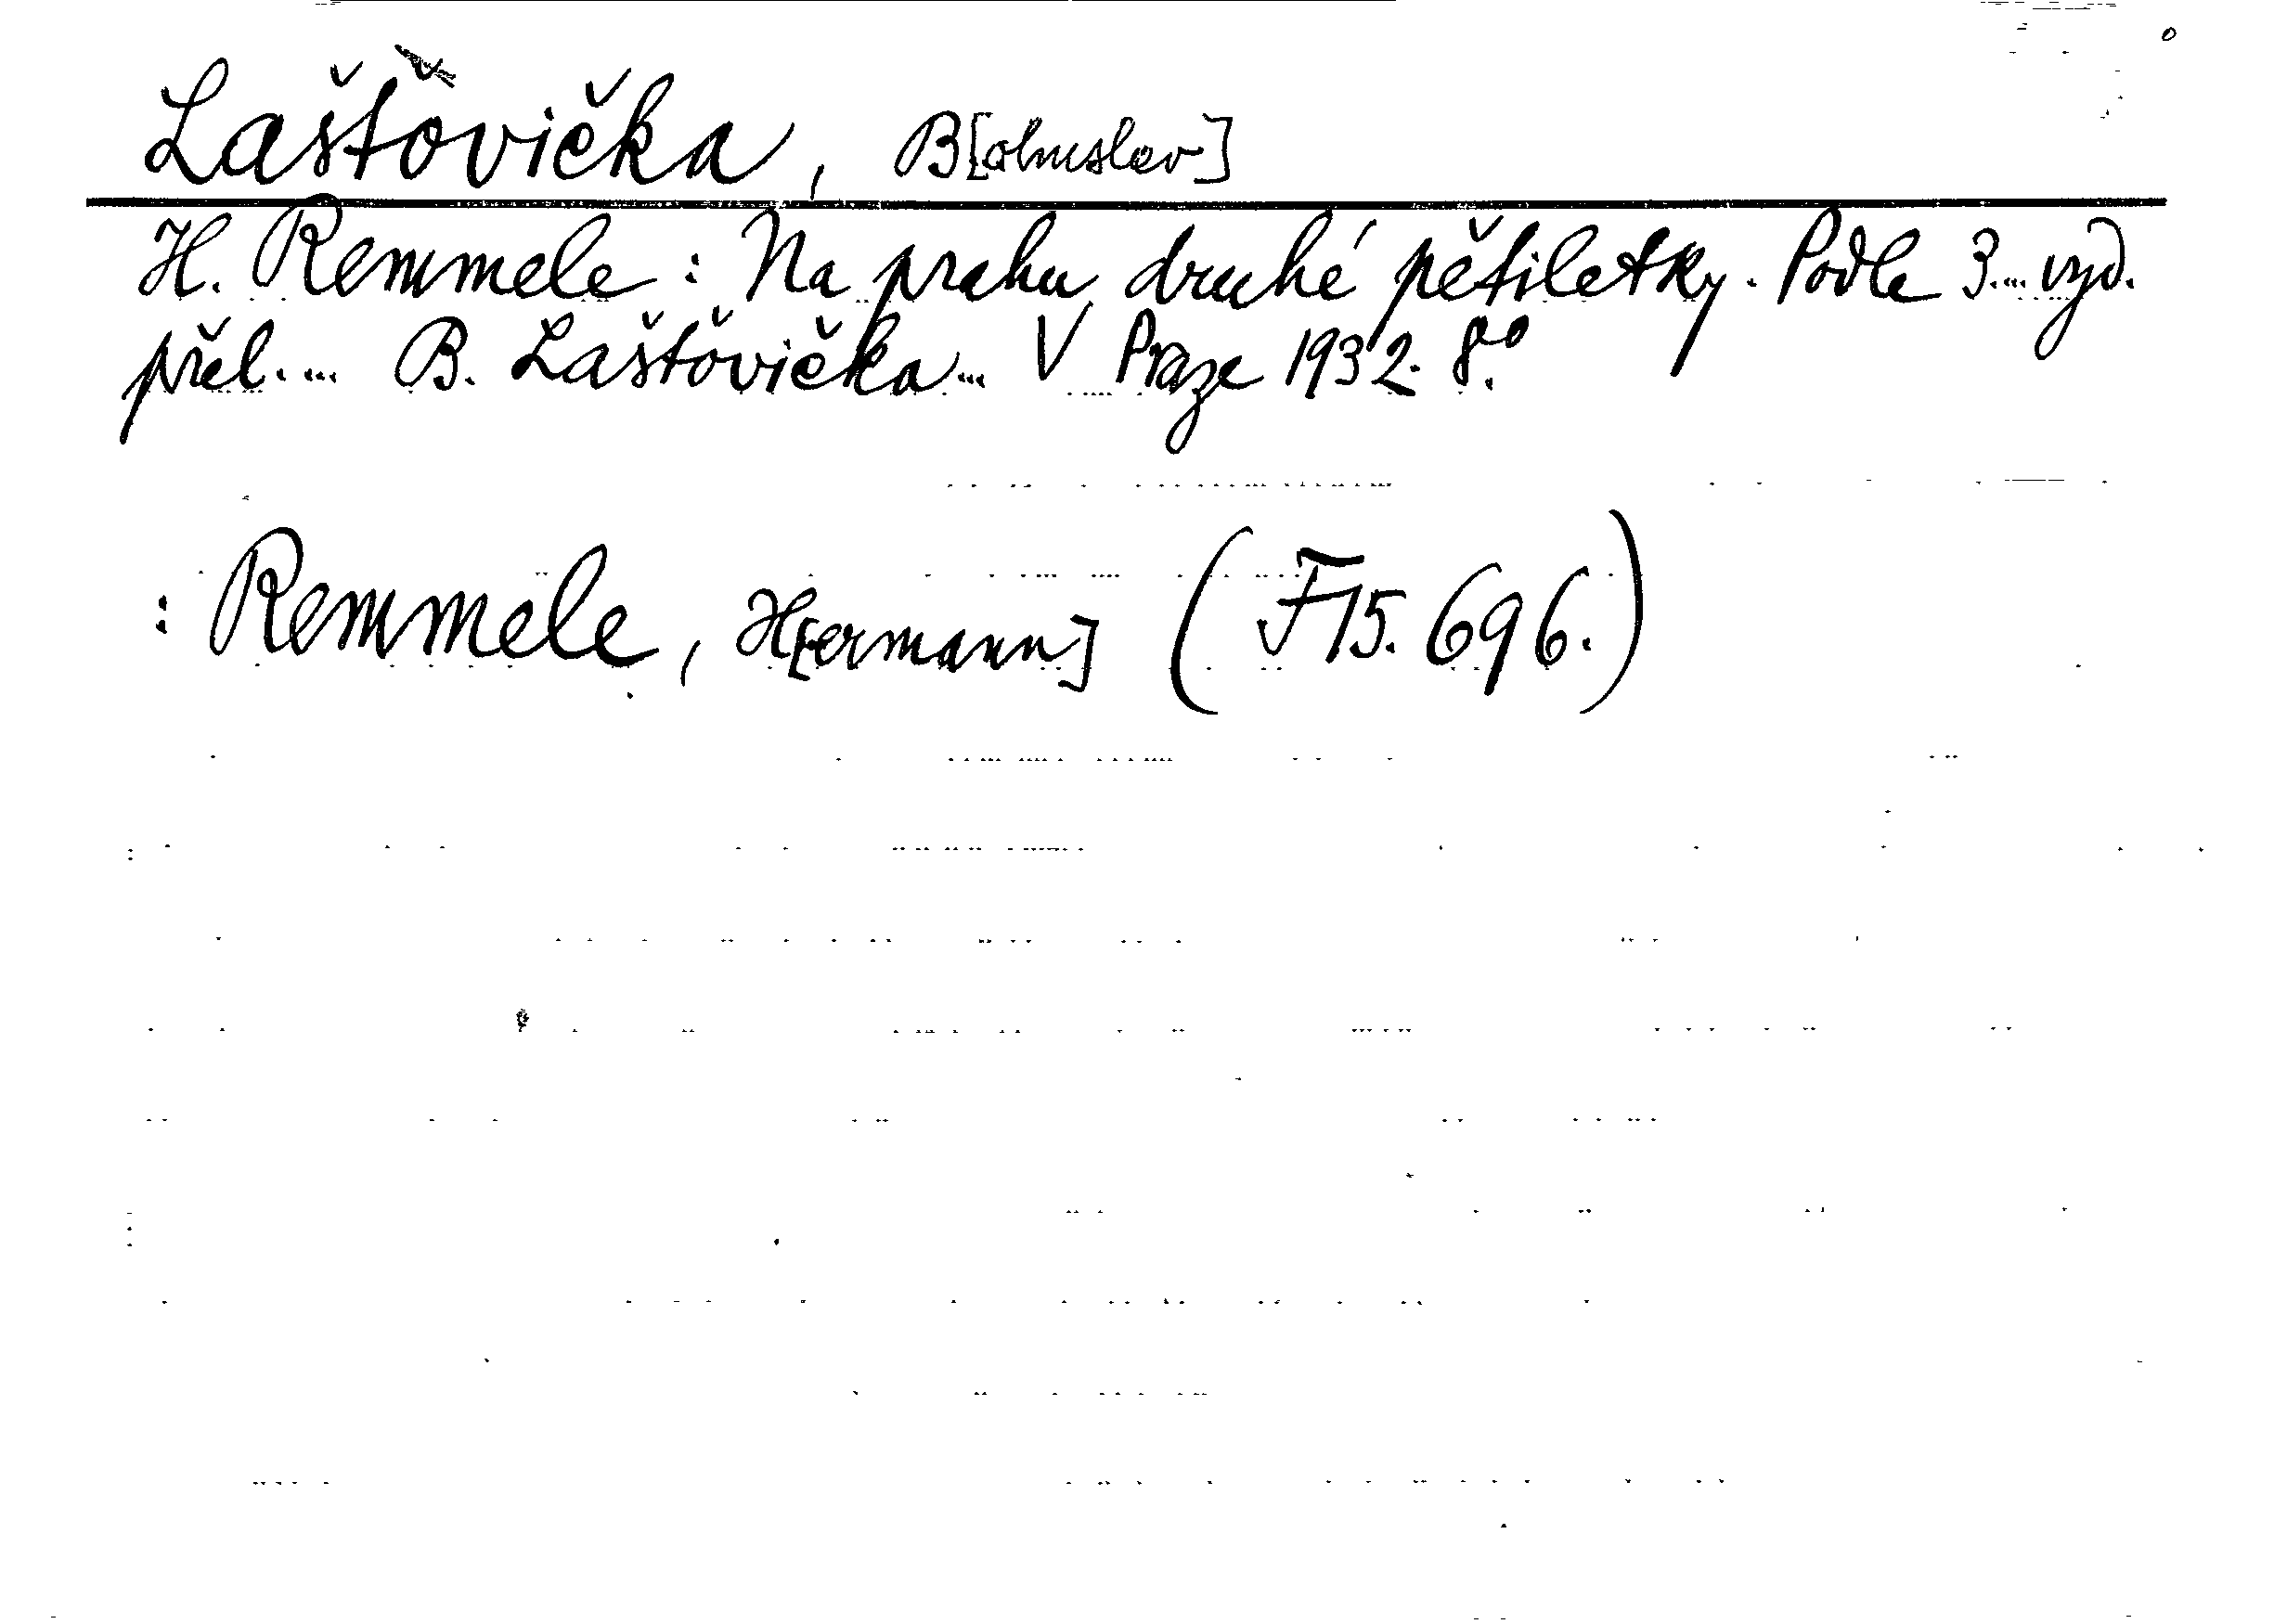 Laštovička, B[ohuslav]
H. Remmele: Na prahu druhé pětiletky. Podle 3... vyd.
přel.... B. Laštovička... V Praze 1932. 8.°
: Remmele, H[ermann] (F 15.696.)